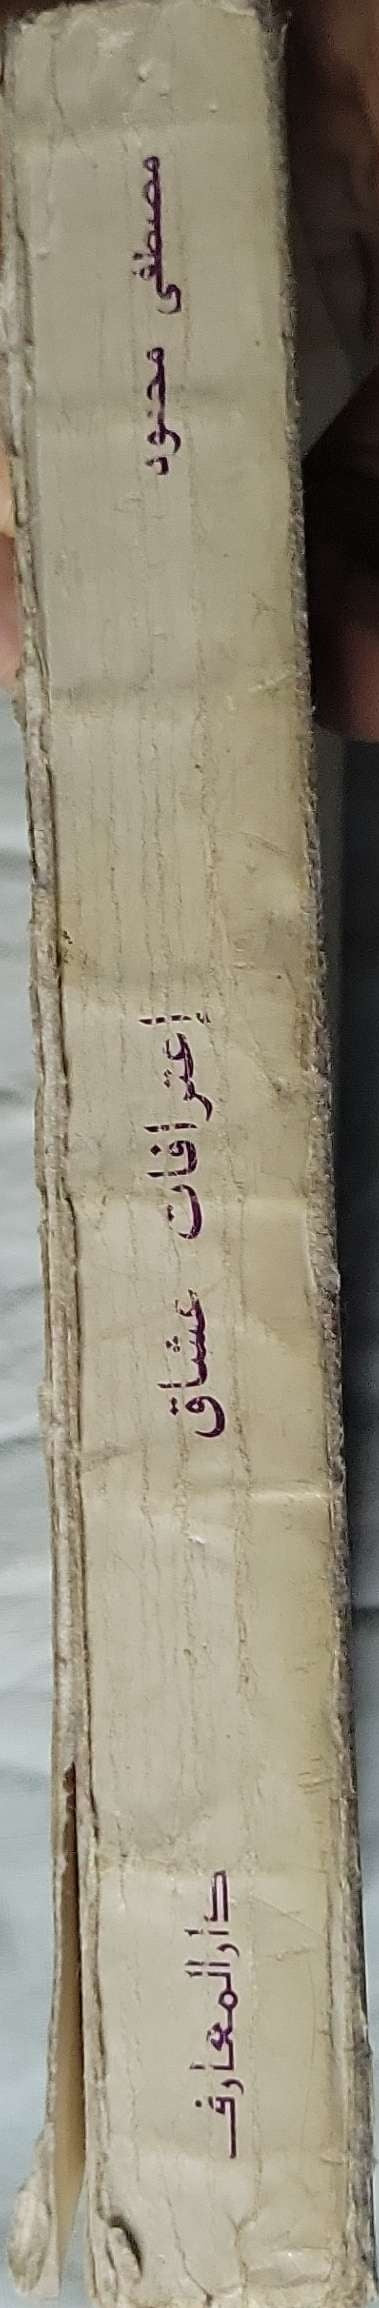 مصطفى محمود
إعترافات عشاق
دارالمعارف